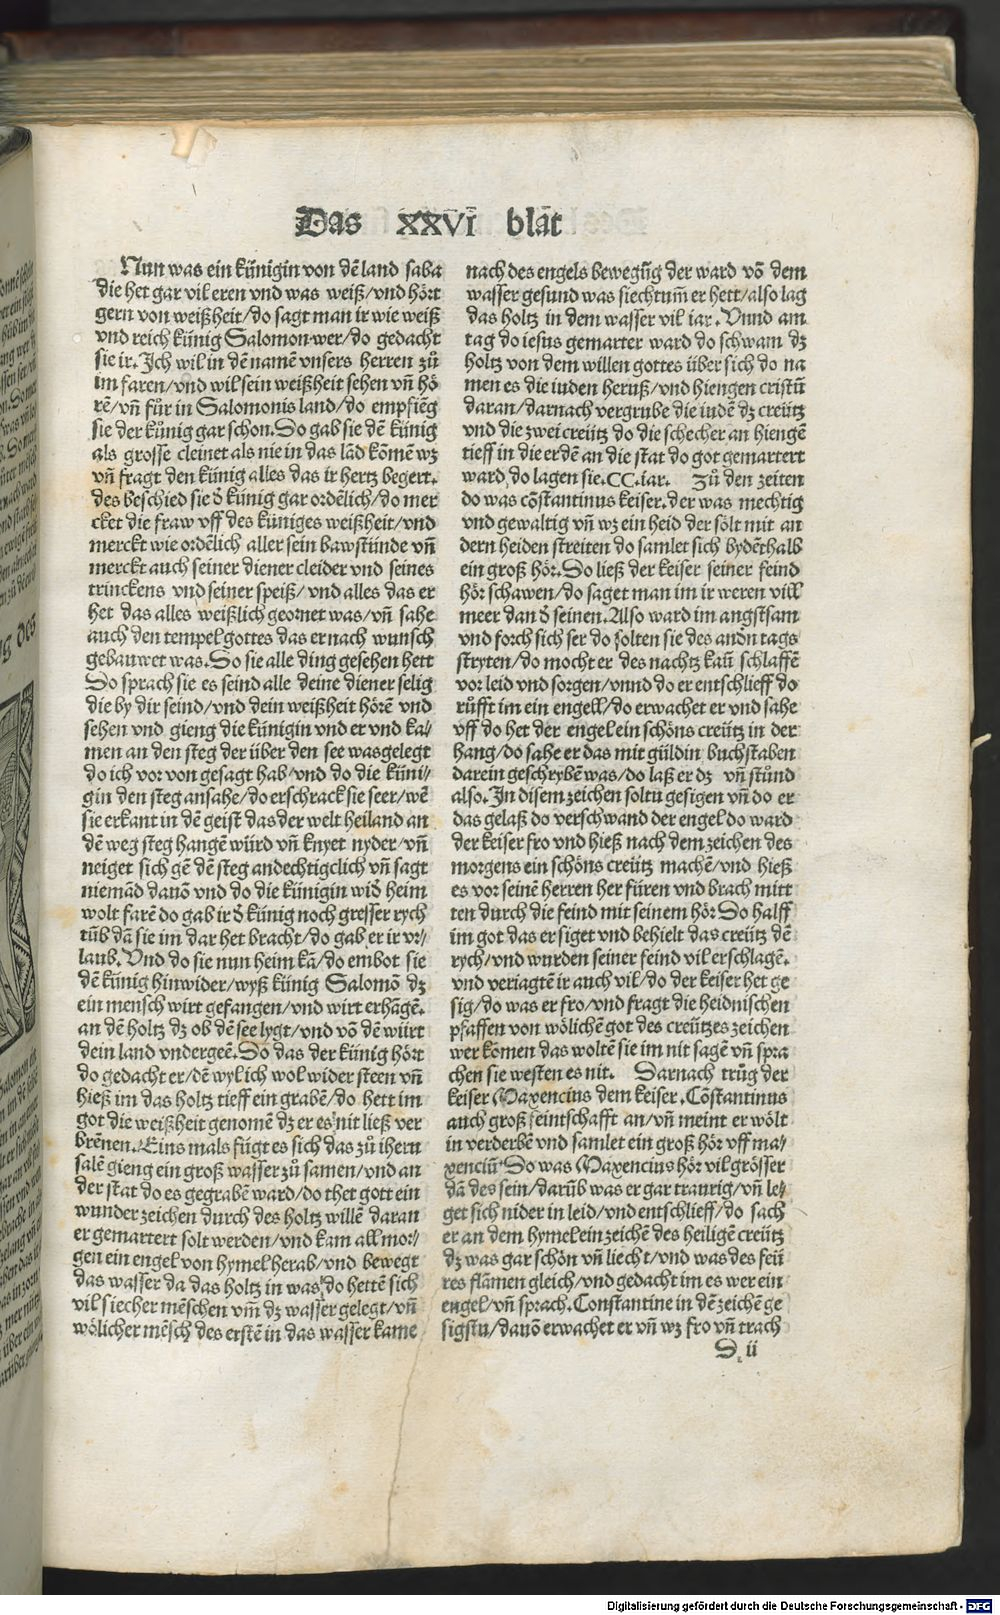 Das XXVI blat
Nun was ein künigin von dē land saba
die het gar vil eren vnd was weiß/vnd hört
gern von weißheit/do sagt man ir wie weiß
vnd reich künig Salomon wer/do gedacht
sie ir. Ich wil in dē namē vnsers herren zů
im faren/vnd wil sein weißheit sehen vñ hö
rē/vñ fůr in Salomonis land/do empfiēg
sie der künig gar schon. So gab sie dē künig
als grosse cleinet als nie in das lād kōmē wz
vñ fragt den künig alles das ir hertz begert.
des beschied sie d̄ künig gar ordēlich/do mer
cket die fraw vff des küniges weißheit/vnd
merckt wie ordēlich aller sein bawstünde vñ
merckt auch seiner diener cleider vnd seines
trinckens vnd seiner speiß/vnd alles das er
het das alles weißlich geornet was/vñ sahe
auch den tempel gottes das er nach wunsch
gebauwet was. So sie alle ding gesehen hett
Do sprach sie es seind alle deine diener selig
die by dir seind/vnd dein weißheit hörē vnd
sehen vnd gieng die künigin vnd er vnd ka/
men an den steg der über den see was gelegt
do ich vor von gesagt hab/vnd do die küni/
gin den steg ansahe/do erschrack sie seer/wē
sie erkant in dē geist das der welt heiland an
dē weg steg hangē würd vñ knyet nyder/vñ
neiget sich gē dē steg andechtigclich vñ sagt
niemād dauō vnd do die künigin wid̄ heim
wolt farē do gab ir d̄ künig noch gresser rych
tūb dā sie im dar het bracht/do gab er ir vr/
laub. Vnd do sie nun heim kā/do embot sie
dē künig hinwider/wyß künig Salomō dz
ein mensch wirt gefangen/vnd wirt erhāgē.
an dē holtz dz ob dē see lygt/vnd vō dē würt
dein land vndergeē. Do das der künig hört
do gedacht er/dē wyl ich wol wider steen vñ
hieß im das holtz tieff ein grabē/do hett im
got die weißheit genomē dz er es nit ließ ver
brēnen. Eins mals fügt es sich das zů ihern
salē gieng ein groß wasser zů samen/vnd an
der stat do es gegrabē ward/do thet gott ein
wunder zeichen durch des holtz willē daran
er gemartert solt werden/vnd kam all mor/
gen ein engel von hymel herab/vnd bewegt
das wasser da das holtz in was/do hettē sich
vil siecher mēschen vm̄ dz wasser gelegt/vñ
wölicher mēsch des erstē in das wasser kame
nach des engels bewegūg der ward vō dem
wasser gesund was siechtum̄ er hett/also lag
das holtz in dem wasser vil iar. Vnnd am
tag do iesus gemarter ward do schwam dz
holtz von dem willen gottes über sich do na
men es die iuden heruß/vnd hiengen cristū
daran/darnach vergrube die iudē dz creütz
vnd die zwei creütz do die schecher an hiengē
tieff in die erdē an die stat do got gemartert
ward/do lagen sie. CC. iar. Zů den zeiten
do was cōstantinus keiser. der was mechtig
vnd gewaltig vñ wz ein heid der sölt mit an
dern heiden streiten do samlet sich bydēthalb
ein groß hör. So ließ der keiser seiner feind
hör schawen/do saget man im ir weren vill
meer dan d̄ seinen. Also ward im angstsam
vnd forch sich ser do solten sie des andn̄ tags
stryten/do mocht er des nachtz kaū schlaffē
vor leid vnd sorgen/vnnd do er entschlieff do
rüfft im ein engell/do erwachet er vnd sahe
vff do het der engel ein schöns creütz in der
hang/do sahe er das mit güldin buchstaben
darein geschrybē was/do laß er dz vñ stůnd
also. In disem zeichen soltu gesigen vñ do er
das gelaß do verschwand der engel do ward
der keiser fro vnd hieß nach dem zeichen des
morgens ein schöns creütz machē/vnd hieß
es vor seinē herren her füren vnd brach mitt
ten durch die feind mit seinem hör. So halff
im got das er siget vnd behielt das creütz dē
rych/vnd wurden seiner feind vil erschlagē.
vnd veriagtē ir auch vil/do der keiser het ge
sig/do was er fro/vnd fragt die heidnischen
pfaffen von wölichē got des creützes zeichen
wer kōmen das woltē sie im nit sagē vñ spra
chen sie westen es nit. Darnach trůg der
keiser Maxencius dem keiser. Cōstantinus
auch groß feintschafft an/vñ meint er wölt
in verderbē vnd samlet ein groß hör vff ma/
xenciū. So was Maxencius hör vil grösser
dā des sein/darūb was er gar traurig/vñ le/
get sich nider in leid/vnd entschlieff/do sach
er an dem hymel ein zeichē des heiligē creütz
dz was gar schön vñ liecht/vnd was des feü
res flāmen gleich/vnd gedacht im es wer ein
engel/vñ sprach. Constantine in dē zeichē ge
sigstu/dauō erwachet er vñ wz fro vñ trach
D ii
Digitalisierung gefördert durch die Deutsche Forschungsgemeinschaft - DFG